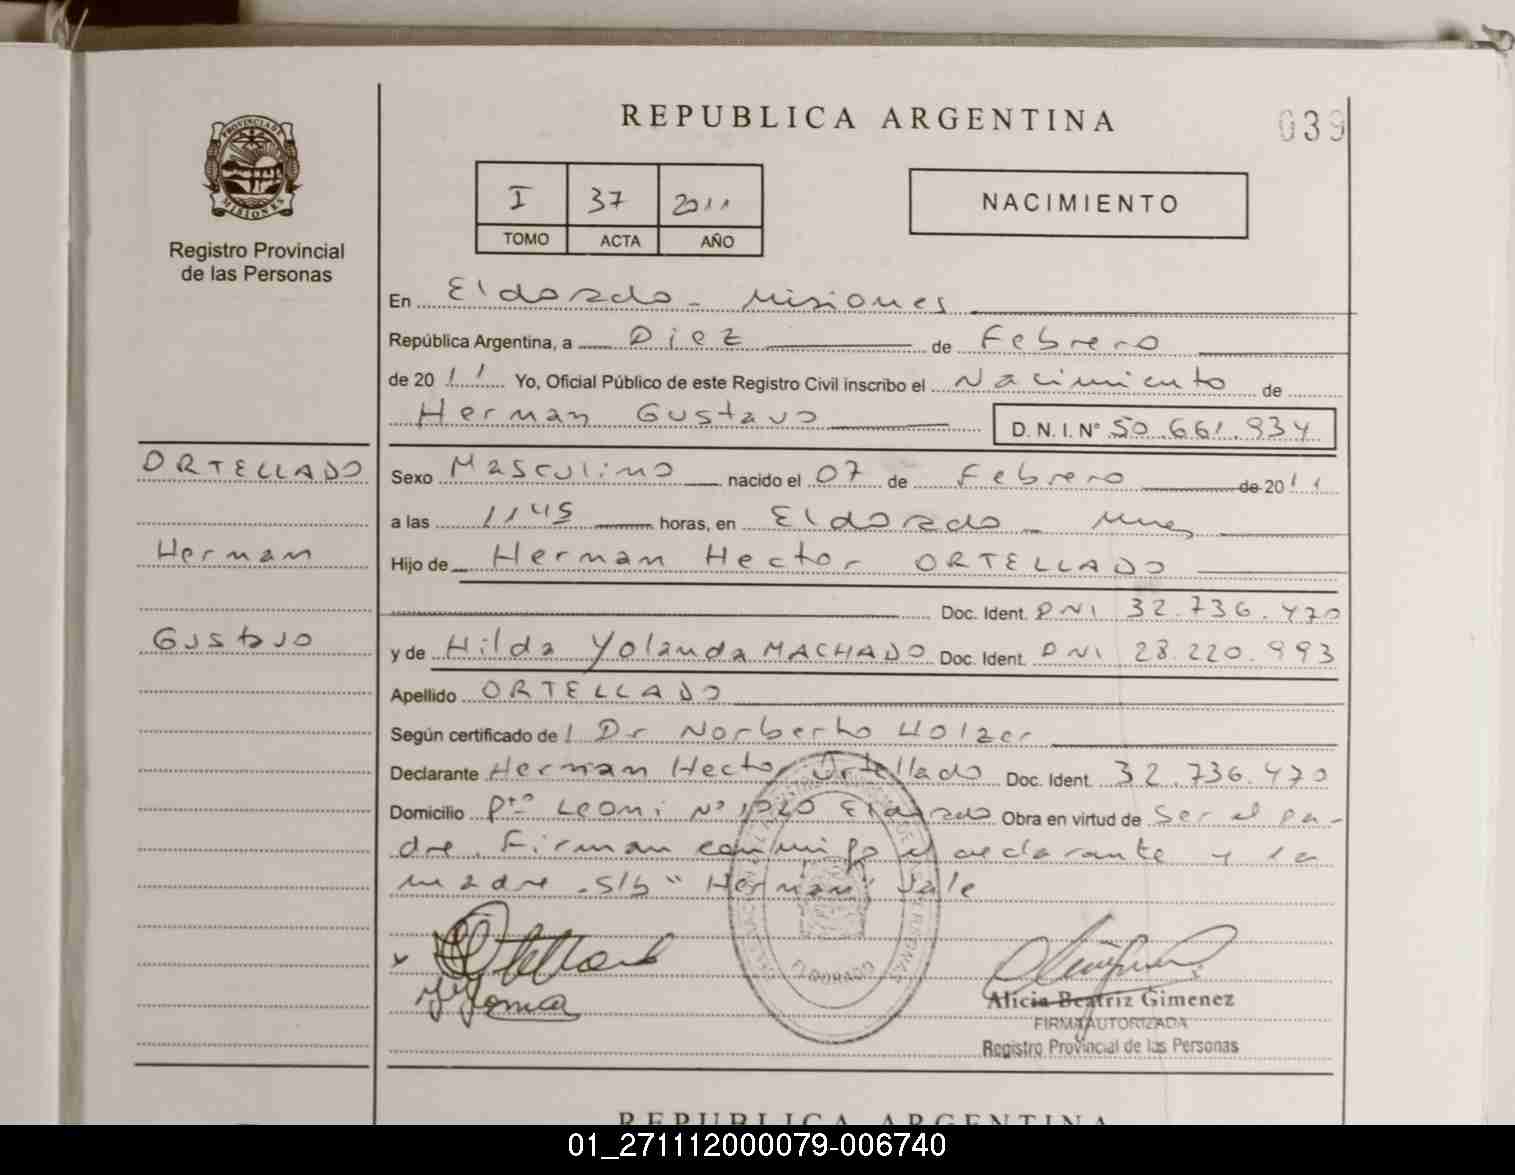 REPUBLICA ARGENTINA
039
PROVINCIA DE
MISIONES
Registro Provincial
de las Personas
I 37 2011
TOMO ACTA AÑO
NACIMIENTO
En Eldorado - Misiones
República Argentina, a Diez de Febrero
de 2011 Yo, Oficial Público de este Registro Civil inscribo el Nacimiento de
Herman Gustavo D.N.I. Nº 50.661.934
ORTELLADO
Herman
Gustavo
Sexo Masculino nacido el 07 de Febrero de 2011
a las 1145 horas, en Eldorado - Mnes
Hijo de Herman Hector ORTELLADO
Doc. Ident. DNI 32.736.470
y de Hilda Yolanda MACHADO Doc. Ident. DNI 28.220.993
Apellido ORTELLADO
Según certificado de l Dr Norberto Holzer
Declarante Herman Hector Ortellado Doc. Ident. 32.736.470
Domicilio Pto Leoni Nº 1020 Eldorado Obra en virtud de Ser el pa-
dre. Firman conmigo el declarante y la
madre. S/b "Herman" Vale
ELDORADO
Alicia Beatriz Gimenez
FIRMA AUTORIZADA
Registro Provincial de las Personas
REPUBLICA ARGENTINA
01_271112000079-006740